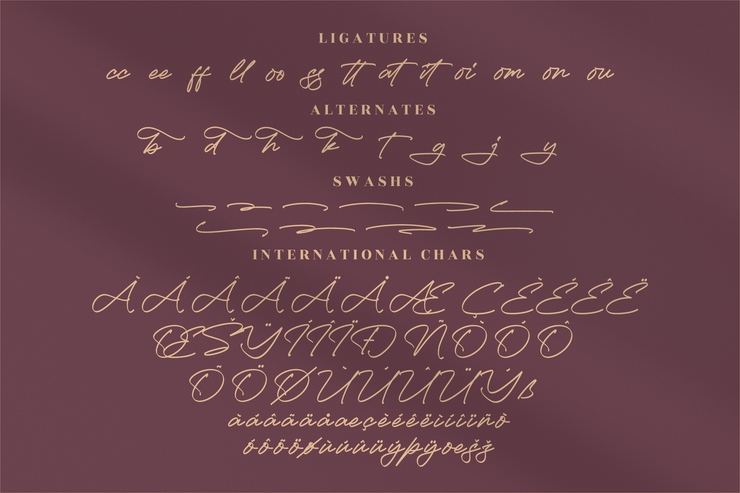 LIGATURES
cc ee ff ll oo ss tt at it oi om on ou
ALTERNATES
b d h k t g j y
SWASHS
INTERNATIONAL CHARS
À Á Â Ã Ä Å Æ Ç È É Ê Ë
Œ Š Ÿ Ì Í Î Ï Ð Ñ Ò Ó Ô
Õ Ö Ø Ù Ú Û Ü Ý ß
à á â ã ä å æ ç è é ê ë ì í î ï ñ ò
ó ô õ ö ø ù ú û ü ý þ ÿ œ š ž